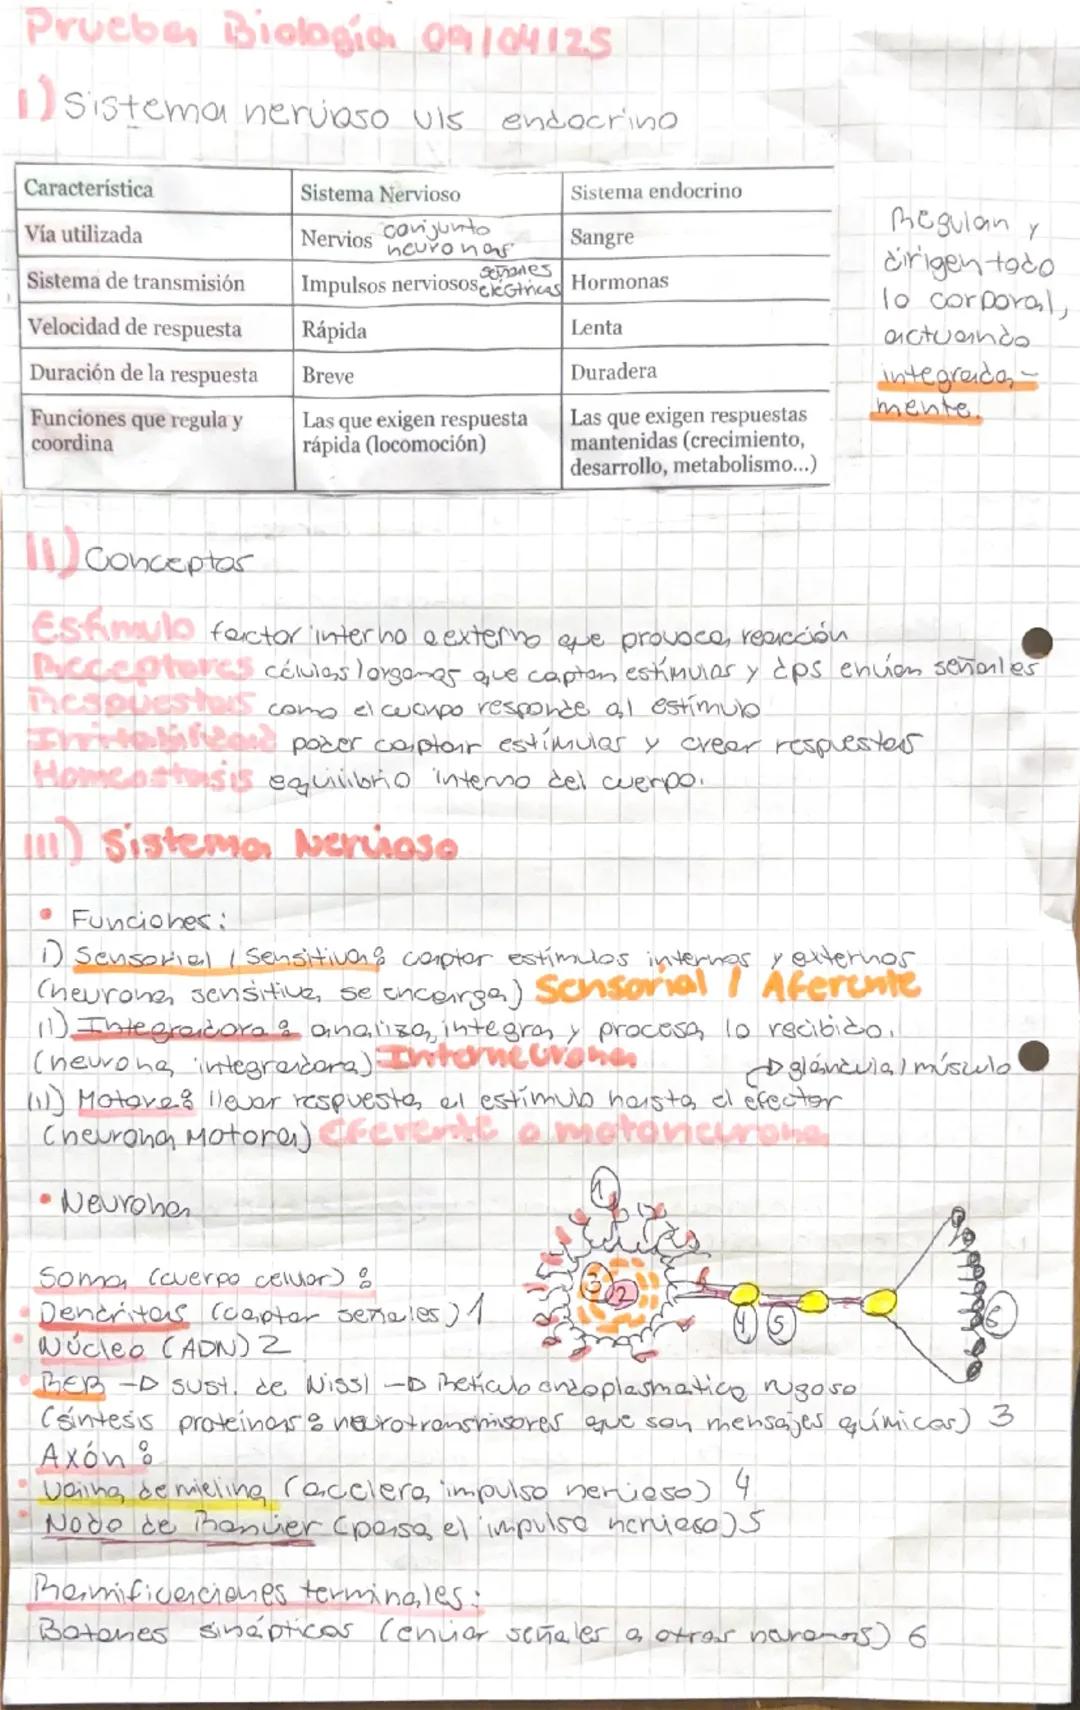 Prueba Biología 09/04/25
I) Sistema nervioso v/s endocrino
Característica Sistema Nervioso Sistema endocrino
Vía utilizada Nervios conjunto neuronas Sangre
Sistema de transmisión Impulsos nerviosos señales eléctricas Hormonas
Velocidad de respuesta Rápida Lenta
Duración de la respuesta Breve Duradera
Funciones que regula y coordina Las que exigen respuesta rápida (locomoción) Las que exigen respuestas mantenidas (crecimiento, desarrollo, metabolismo...)
Regulan y
dirigen todo
lo corporal,
actuando
integrada-
mente.
II) Conceptos
Estímulo factor interno o externo que provoca reacción
Receptores células/organos que captan estímulos y dps envian señales
Respuestas como el cuerpo responde al estímulo
Irritabilidad poder captar estímulos y crear respuestas
Homeostasis equilibrio interno del cuerpo.
III) Sistema Nervioso
• Funciones:
i) Sensorial / Sensitiva: captar estímulos internos y externos
(neurona sensitiva se encarga) Sensorial / Aferente
ii) Integradora: analiza, integra y procesa lo recibido.
(neurona integradora) Interneurona
→ glándula/músculo
iii) Motora: llevar respuesta al estímulo hasta el efector
(neurona Motora) Eferente o motoneurona
• Neurona
1
3 2
4 5
6
Soma (cuerpo celular):
• Dendritas (captar señales) 1
• Núcleo (ADN) 2
• RER → sust. de Nissl → Retículo endoplasmatico rugoso
(síntesis proteínas: neurotransmisores que son mensajes químicos) 3
Axón:
• Vaina de mielina (acelera impulso nervioso) 4
• Nodo de Ranvier (pasa el impulso nervioso) 5
Ramificaciones terminales:
Botones sinápticos (enviar señales a otras neuronas) 6